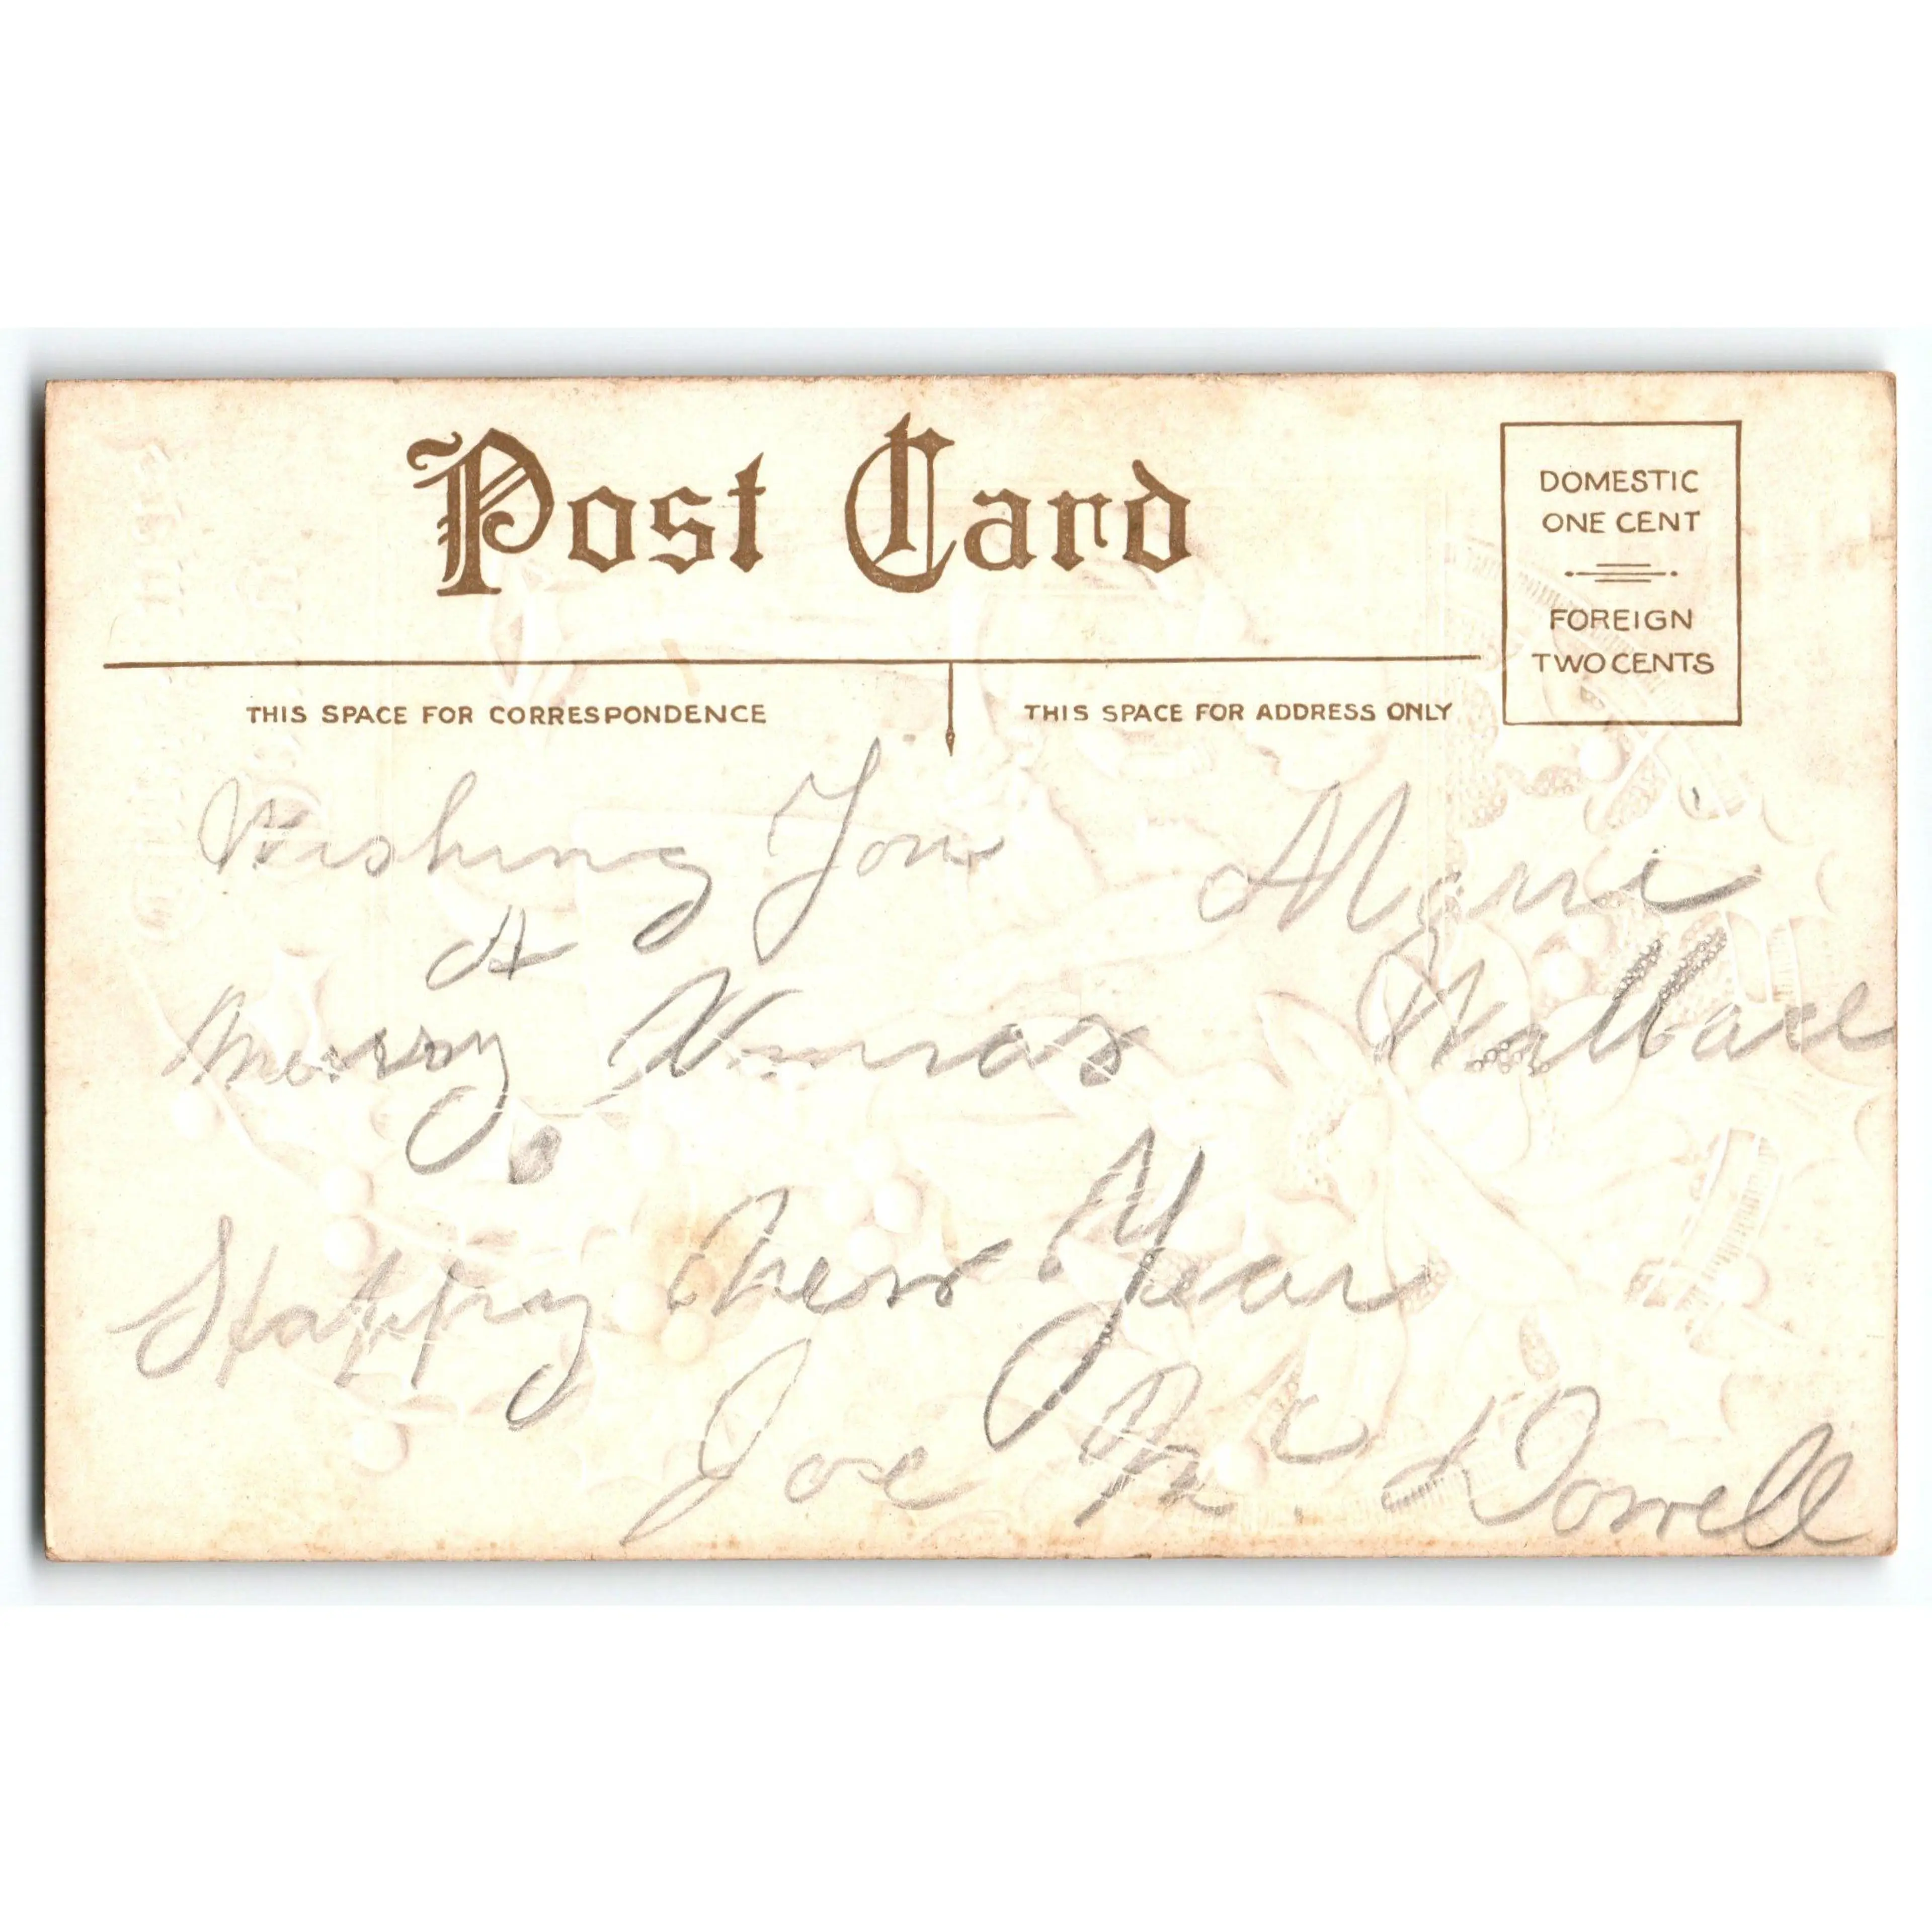 Post Card
DOMESTIC
ONE CENT
FOREIGN
TWO CENTS
THIS SPACE FOR CORRESPONDENCE
THIS SPACE FOR ADDRESS ONLY
Wishing You
A
Merry Xmas
Happy New Year
Joe Mc Dowell
Marie
Wallace